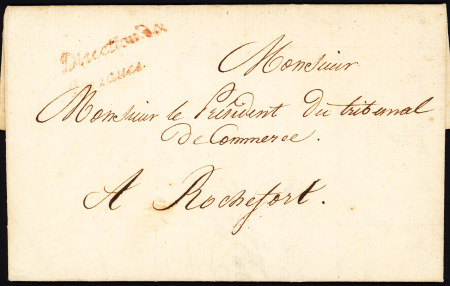 Direction des
Monsieur
Monsieur le Président du tribunal
De Commerce.
A Rochefort.